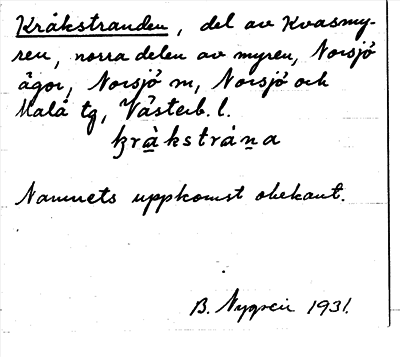 Kråkstranden, del av Kvasmy-
ren, norra delen av myren, Norsjö
ägor, Norsjö sn, Norsjö och
Malå tg, Västerb. l.
kràkstrána
Namnets uppkomst obekant.
B. 1931.